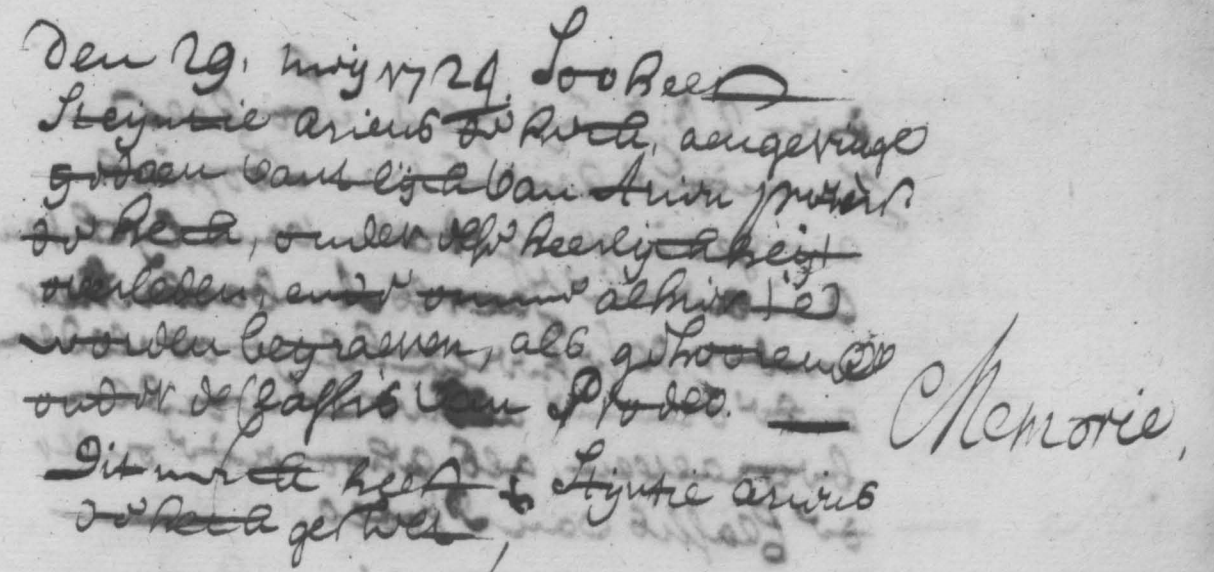 Den 29. meij 1724. Soo heeft
Steijntie Ariens de kock, aengevinge
gedaen vant lijck van Arien
de kock, onder dese heerlijckheijt
overleden, ende omme alhier te
worden begraeven, als gehoorende
onder de Classis van Prodeo.
Dit merck heeft Stijntie Ariens
de kock gestelt,
Memorie,